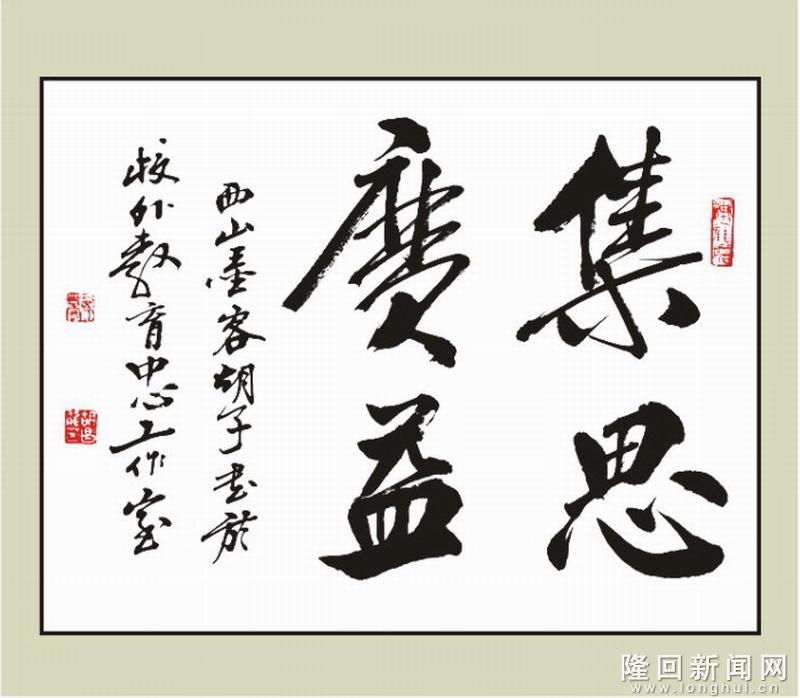 集思
廣益
西山墨客胡子書於
校外教育中心工作室
隆回新闻网
www.longhui.cn